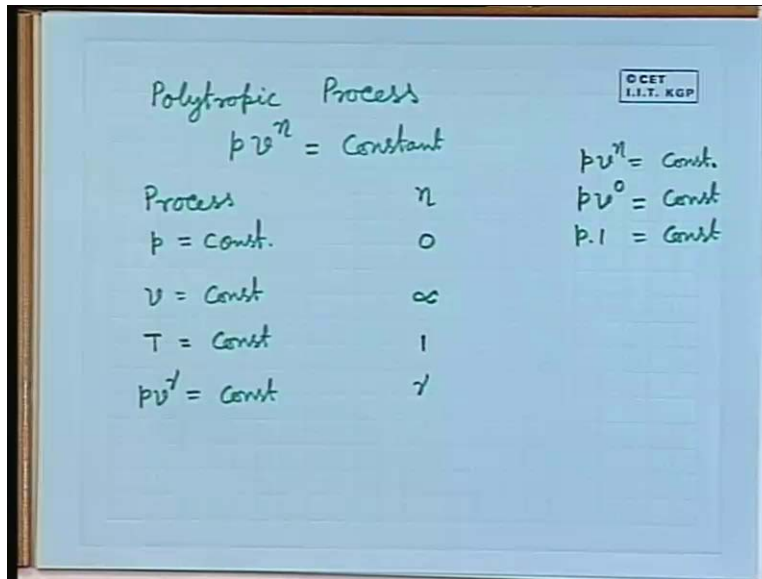 Polytropic Process
©CET
I.I.T. KGP
pvⁿ = Constant
Process n
p = Const. 0
v = Const ∝
T = Const 1
pv^γ = Const γ
pvⁿ = Const.
pv⁰ = Const
p.1 = Const